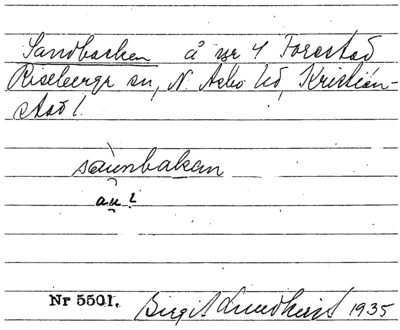 Sandbacken å nr 4 Forestad
Riseberga sn, N. Åsbo hd, Kristian-
stad l.
sàunbakan
au!
Nr 5501. Birgit Lundkvist 1935